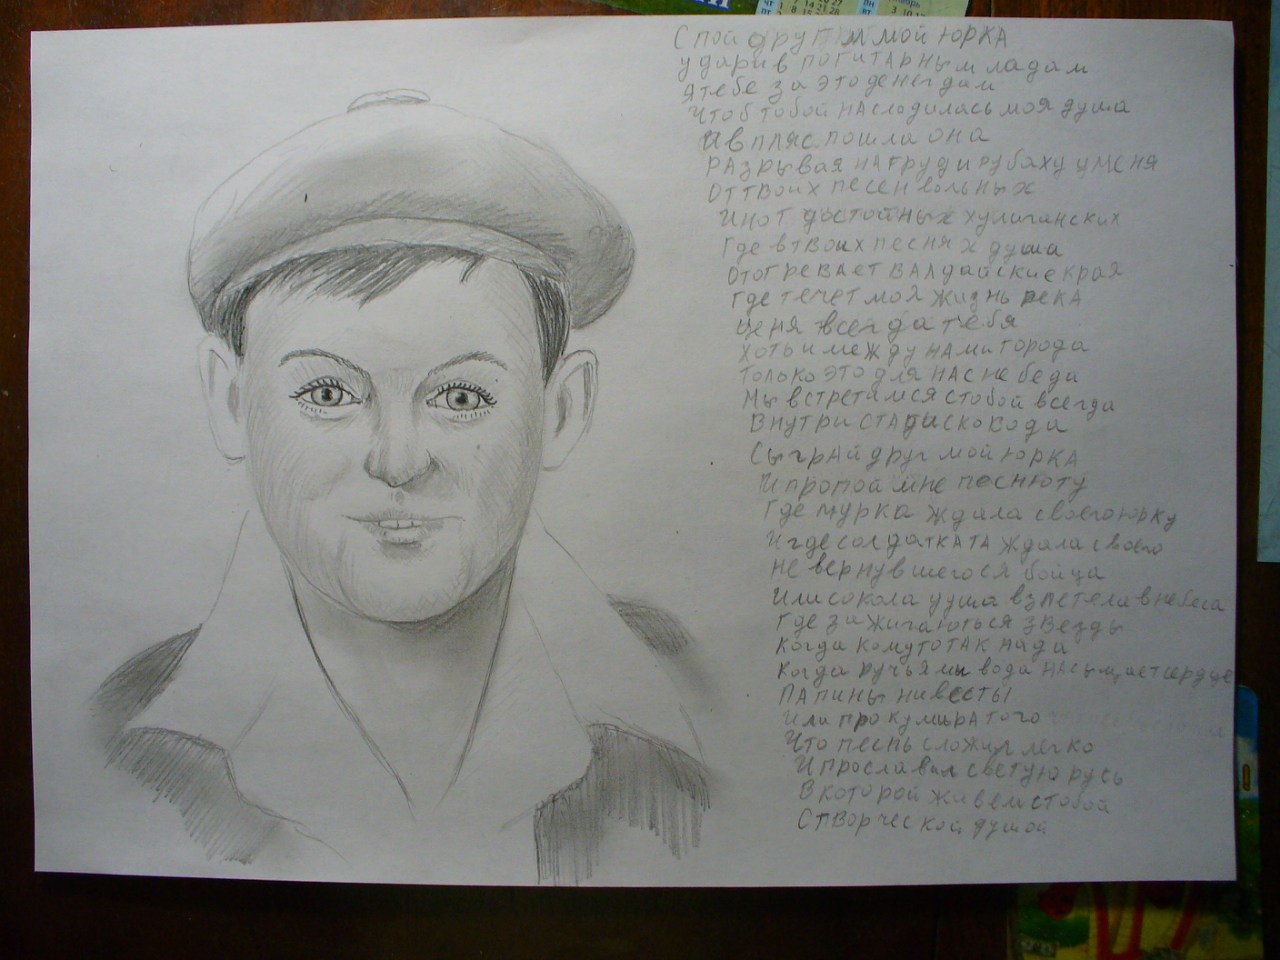 Спой друг мой Юрка
ударив по гитарным ладам
я тебе за это денег дам
Чтоб тобой наслодилась моя душа
И в пляс пошла она
Разрывая на груди рубаху у меня
От твоих песен вольных
И нот достойных хулиганских
Где в твоих песнях душа
Отогревает валдайские края
Где течет моя жизнь река
Ценя всегда тебя
Хоть и между нами города
Только это для нас не беда
Мы встретимся с тобой всегда
Внутри ста дисковода
Сыграй друг мой Юрка
И пропой мне песнюту
Где мурка ждала своего юрку
И где солдатката ждала своего
не вернувшегося бойца
Или сокола душа взлетела в небеса
Где зажигаються звезды
Когда комутотак нада
Когда ручьями вода насыщает сердце
Папины нивесты
Или про кумира того
Что песнь сложил легко
И прославил светую русь
В которой живем с тобой
С творческой душой